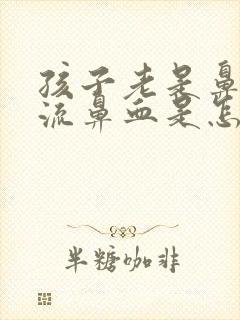 孩子老是鼻
流鼻血是怎
半糖咖啡